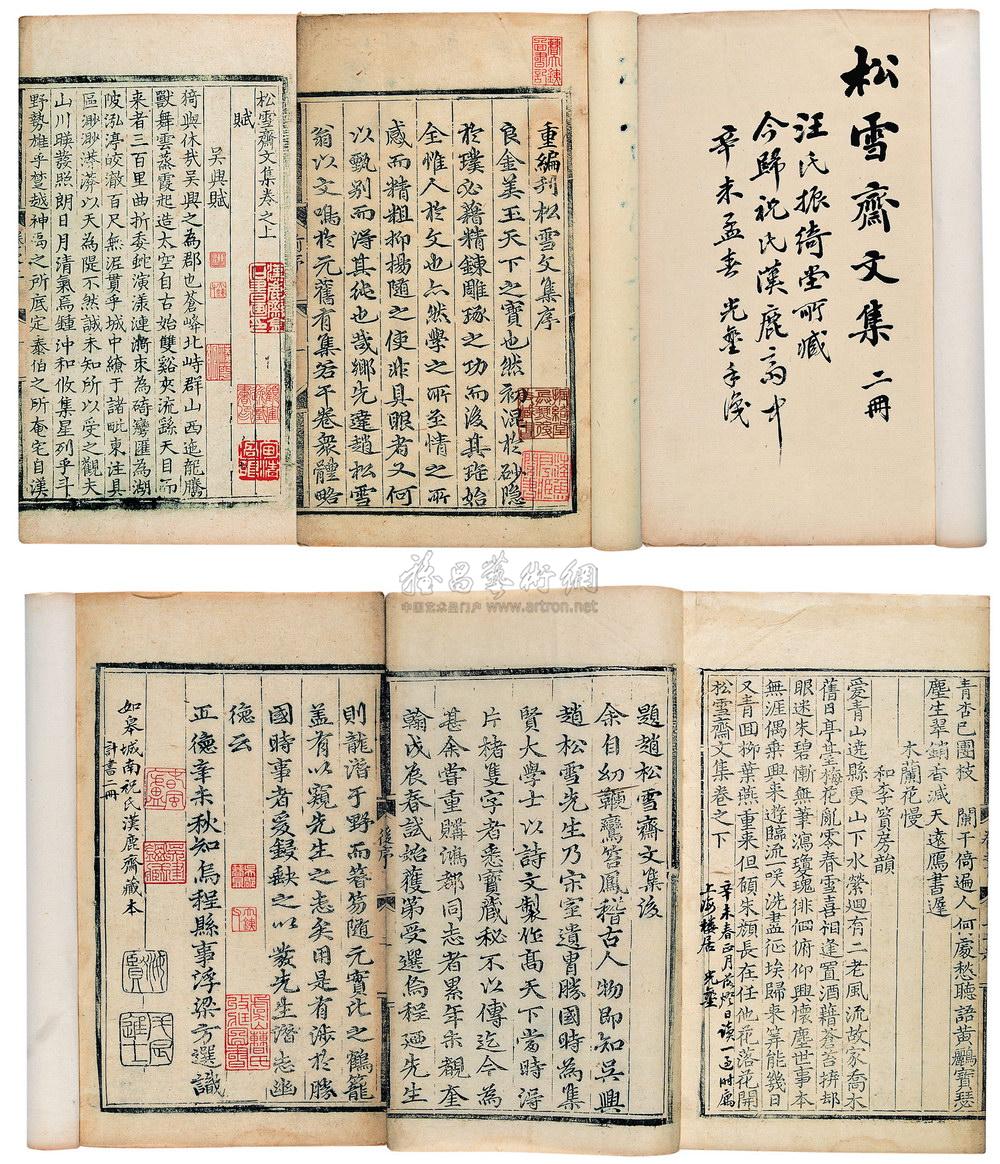 松雪齋文集 二冊
汪氏振綺堂所藏
今歸祝氏漢鹿齋中
辛未孟春 光壼手識
重編刋松雪文集序
良金美玉天下之寶也然初混於砂隱
於璞必藉精鍊雕琢之功而後其珤始
全惟人於文也亦然學之所至情之所
感而精粗抑揚隨之使非具眼者又何
以甄别而得其純也哉鄉先達趙松雪
翁以文鳴於元舊有集若干卷衆體略
松雪齋文集卷之上
賦
吳興賦
猗與休哉吳興之為郡也蒼峰北峙群山西迤龍騰
獸舞雲蒸霞起造太空自古始雙谿夾流繇天目而
来者三百里曲折委虵演漾漣漪束為碕灣匯為湖
陂泓渟皎澈百尺無泥貫乎城中繚于諸毗東注具
區渺渺漭漭以天為隄不然誠未知所以受之觀夫
山川暎發照朗日月清氣焉鍾沖和攸集星列乎斗
野勢雄乎楚越神禹之所底定泰伯之所奄宅自漢
青杏已團枝 闌干倚遍人何處愁聽語黄鸝寶瑟
塵生翠銷香減天遠鴈書遲
木蘭花慢
和李筼房韻
愛青山遶縣更山下水縈迴有二老風流故家喬木
舊日亭臺梅花亂零春雪喜相逢置酒藉蒼苔拚却
眼迷朱碧慚無筆瀉瓊瑰徘徊俯仰興懷塵世事本
無涯偶乘興来遊臨流一咲洗盡征埃歸来筭能幾日
又青囬柳葉燕重来但願朱顔長在任他花落花開
松雪齋文集卷之下
辛未春正月落燈日讀一過時寓
上海樓居 光壼
題趙松雪齋文集後
余自幼鞭鸞笞鳳稽古人物即知吳興
趙松雪先生乃宋室遺胄勝國時為集
賢大學士以詩文製作髙天下當時得
片楮隻字者悉寳藏秘不以傳迄今為
甚余嘗重購鴻都同志者累年未覩奎
翰戊辰春試始獲第受選烏程廼先生
則龍潛于野而簪笏隨元實此之鶴籠
盖有以窺先生之志矣用是有涉於勝
國時事者爰鋟軼之以䒱先生潛志幽
德云
正德辛未秋知烏程縣事浮梁方選識
如皋城南祝氏漢鹿齋藏本
計書二冊
後序
雅昌藝術網
中国艺术品门户 www.artron.net